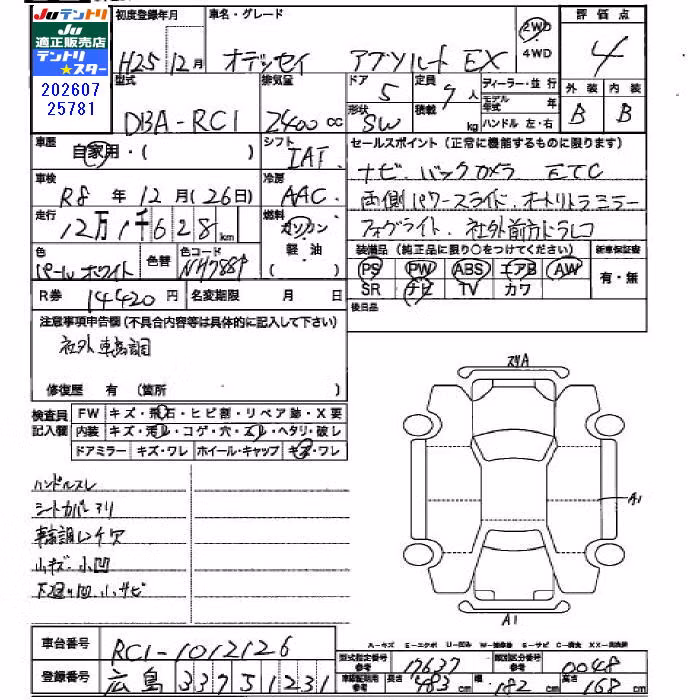 Juテントリ
適正販売店
テントリ
★スター
202607
25781
初度登録年月
H25 12月
車名・グレード
オデッセイ アブソルート EX
2WD
4WD
評価点
4
外装 内装
B B
型式
DBA-RC1
排気量
2400 cc
ドア
5
形状
SW
定員
7人
積載 kg
ディーラー・並行
モデル年式 年
ハンドル 左・右
車歴
自家用・( )
シフト
IAT
車検
R8年12月(26日)
冷房
AAC
走行
12万1千628km
燃料
ガソリン
軽油
( )
色
パールホワイト
色替
色コード
NH788P
R券 14420円
名変期限 月 日
セールスポイント(正常に機能するものに限ります)
ナビ.バックカメラ ETC
両側パワースライド.オートリトラミラー
フォグライト.社外前方ドラレコ
装備品(純正品に限り○をつけてください)
新車保証書
PS PW ABS エアB AW
SR ナビ TV カワ
有・無
後日品
注意事項申告欄(不具合内容等は具体的に記入して下さい)
社外車高調
修復歴 有 (箇所 )
検査員記入欄
FW キズ・飛石・ヒビ割・リペア跡・X要
内装 キズ・汚レ・コゲ・穴・スレ・ヘタリ・破レ
ドアミラー キズ・ワレ ホイール・キャップ キズ・ワレ
ハンドルスレ
シートカバーアリ
車高調レンチ欠
小キズ.小凹
下廻り凹.小サビ
スリA
A1
A1
車台番号
RC1-1012126
登録番号
広島 337 5 1231
A-キズ E-エクボ U-凹み W-補修跡 S-サビ C-腐食
型式指定番号 参考
17637
類別区分番号 参考
0048
車検証記載用 参考
長さ 483 cm
幅 182 cm
高さ 168 cm